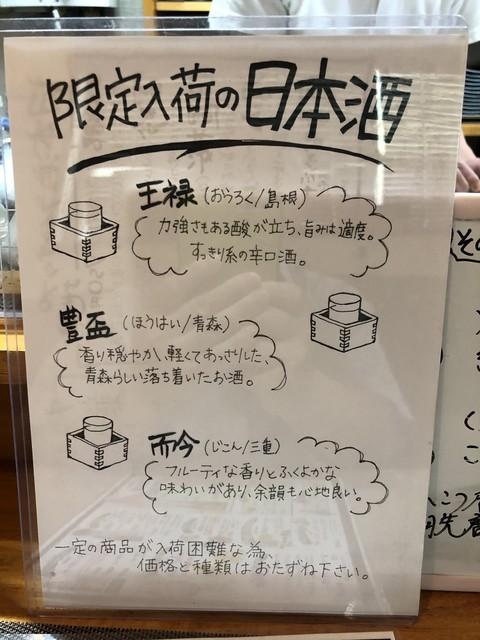 限定入荷の日本酒
王禄(おうろく/島根)
力強さもある酸が立ち、旨みは適度。
すっきり系の辛口酒。
豊盃(ほうはい/青森)
香り穏やか、軽くてあっさりした、
青森らしい落ち着いたお酒。
而今(じこん/三重)
フルーティな香りとふくよかな
味わいがあり、余韻も心地良い。
一定の商品が入荷困難な為、
価格と種類はおたずね下さい。